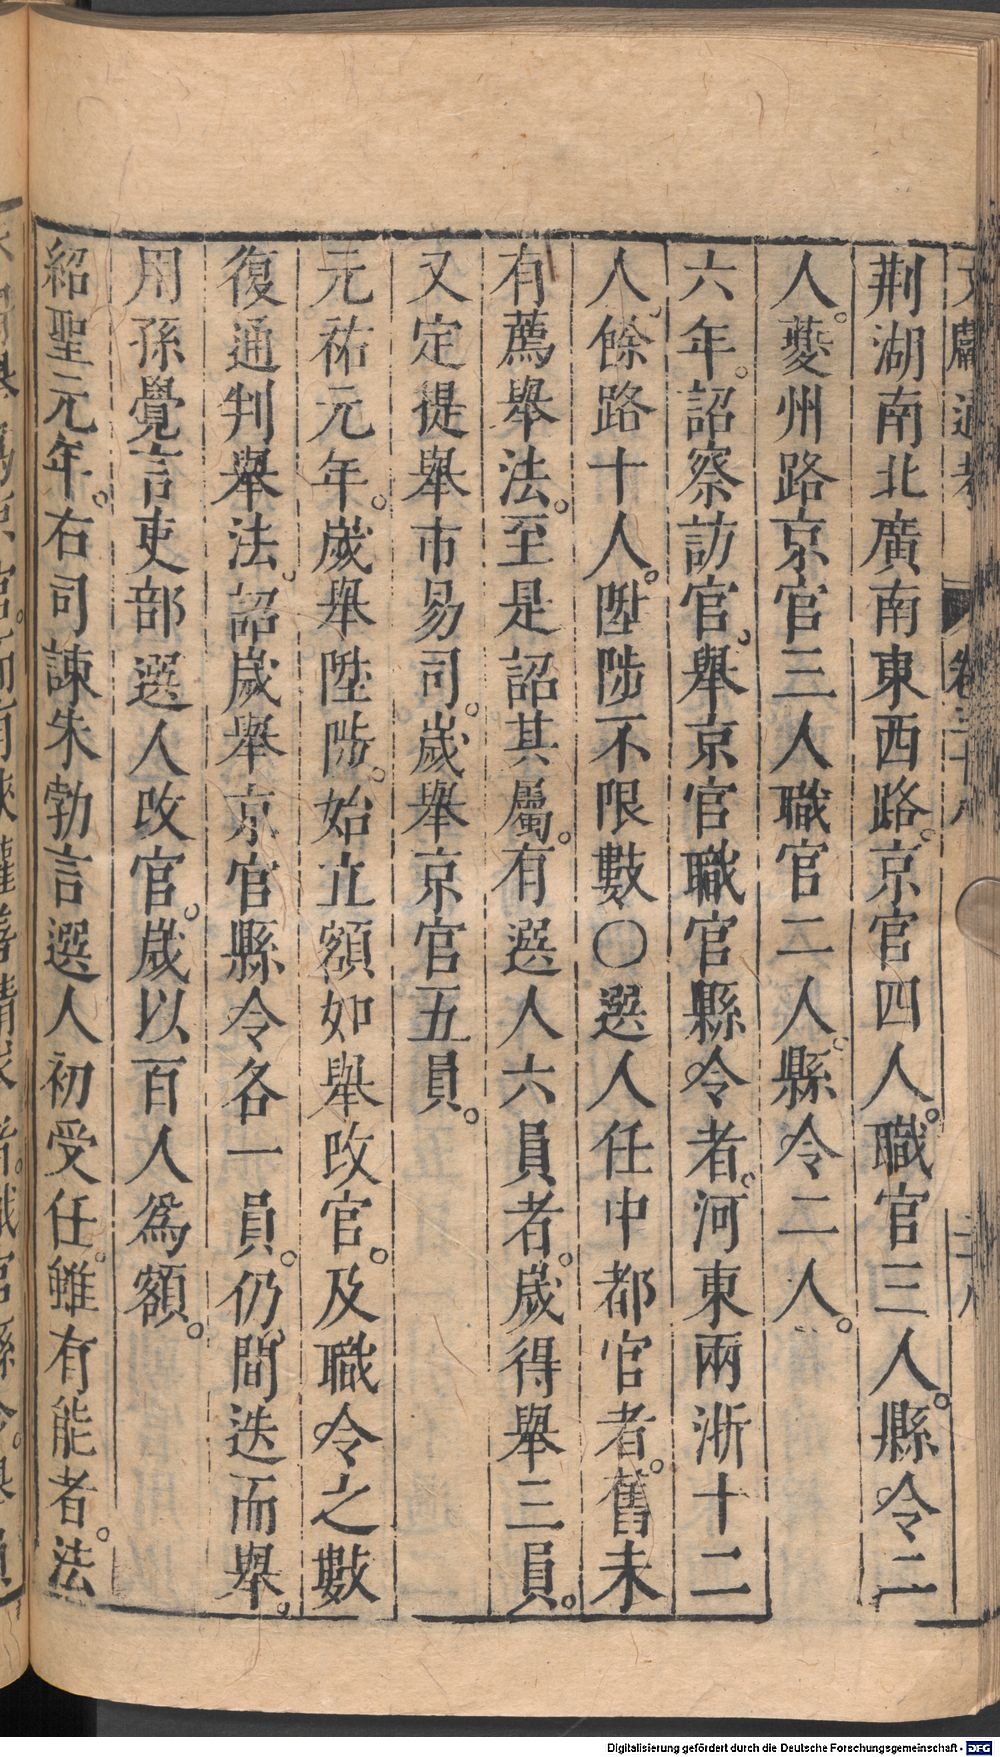 文獻通考 卷三十八 二八
荆湖南北廣南東西路。京官四人。職官三人。縣令二
人。夔州路京官三人職官二人。縣令二人。
六年。詔察訪官。舉京官職官縣令者。河東兩浙十二
人。餘路十人。陞陟不限數〇選人任中都官者。舊未
有薦舉法。至是詔其屬。有選人六員者。歲得舉三員。
又定提舉市易司。歲舉京官五員。
元祐元年。歲舉陞陟。始立額如舉改官。及職令之數
復通判舉法。詔歲舉京官縣令各一員。仍間迭而舉。
用孫覺言吏部選人改官。歲以百人爲額。
紹聖元年。右司諫朱勃言選人初受任。雖有能者。法
Digitalisierung gefördert durch die Deutsche Forschungsgemeinschaft - DFG